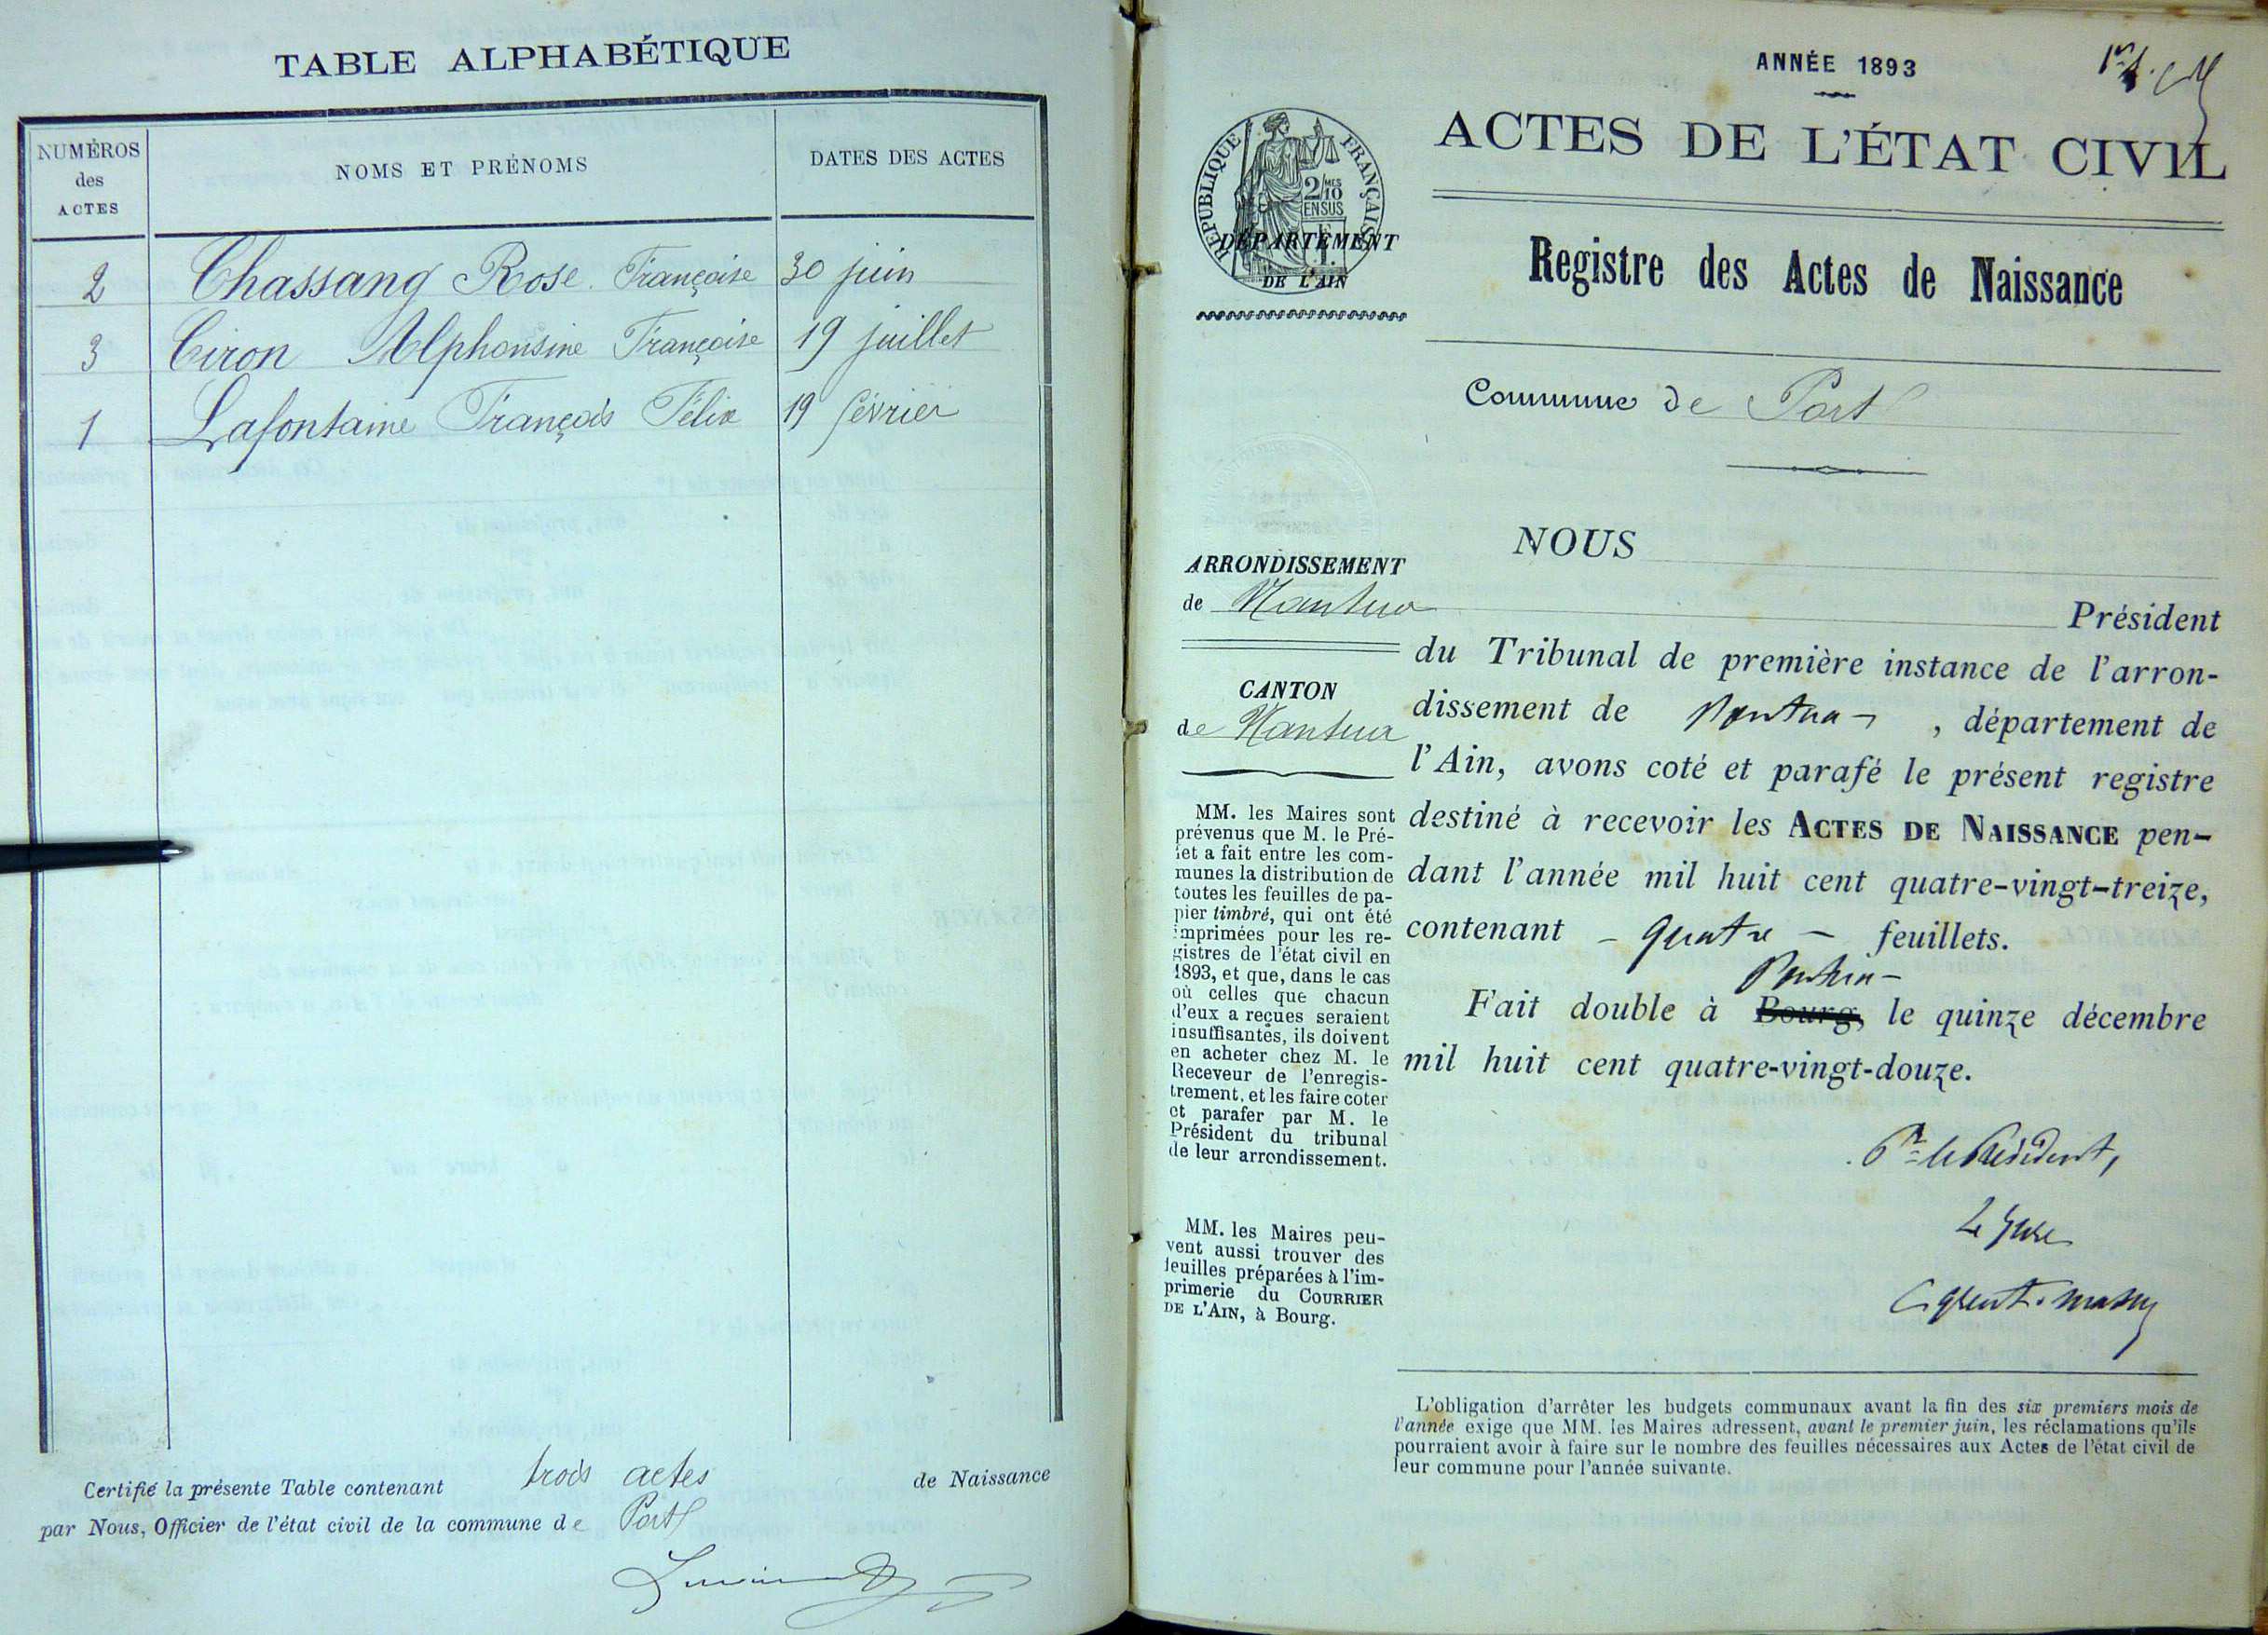 TABLE ALPHABÉTIQUE
NUMÉROS
des
ACTES
NOMS ET PRÉNOMS
DATES DES ACTES
2 Chassang Rose Françoise 30 juin
3 Ciron Alphonsine Françoise 19 juillet
1 Lafontaine François Félix 19 février
Certifié la présente Table contenant trois actes de Naissance
par Nous, Officier de l'état civil de la commune de Port
ANNÉE 1893
ACTES DE L'ÉTAT CIVIL
RÉPUBLIQUE FRANÇAISE
2/10
MES
EN SUS
DÉPARTEMENT
DE L'AIN
Registre des Actes de Naissance
Commune de Port
ARRONDISSEMENT
de Nantua
CANTON
de Nantua
MM. les Maires sont
prévenus que M. le Pré-
fet a fait entre les com-
munes la distribution de
toutes les feuilles de pa-
pier timbré, qui ont été
imprimées pour les re-
gistres de l'état civil en
1893, et que, dans le cas
où celles que chacun
d'eux a reçues seraient
insuffisantes, ils doivent
en acheter chez M. le
Receveur de l'enregis-
trement, et les faire coter
et parafer par M. le
Président du tribunal
de leur arrondissement.
MM. les Maires peu-
vent aussi trouver des
feuilles préparées à l'im-
primerie du COURRIER
DE L'AIN, à Bourg.
NOUS
Président
du Tribunal de première instance de l'arron-
dissement de Nantua , département de
l'Ain, avons coté et parafé le présent registre
destiné à recevoir les ACTES DE NAISSANCE pen-
dant l'année mil huit cent quatre-vingt-treize,
contenant - quatre - feuillets.
Nantua -
Fait double à Bourg, le quinze décembre
mil huit cent quatre-vingt-douze.
Pr le Président,
Le Juge
L'obligation d'arrêter les budgets communaux avant la fin des six premiers mois de
l'année exige que MM. les Maires adressent, avant le premier juin, les réclamations qu'ils
pourraient avoir à faire sur le nombre des feuilles nécessaires aux Actes de l'état civil de
leur commune pour l'année suivante.